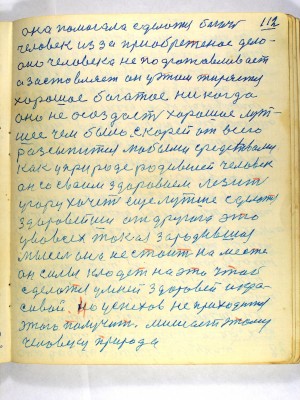 она помогала сделать богат 112
человек из за приобретеное дело
оно человека не подготавливает
а заставляет он у этим теряет
хорошое богатое никогда
оно не создаст хорошое лут-
шее чем было. скорей от всего
разсыпится любыми средствами
как у природе родивший человек
он со своим здоровьем лезит
у гору хочит еще лутше сделать
здоровейши от другога это
у во всех такая зародившая
мысел она не стоит на месте
он силы кладет на это чтоб
сделать умней здоровей и кра-
сивой. но успехов не приходится
этого получить. мишает этому
человеку природа